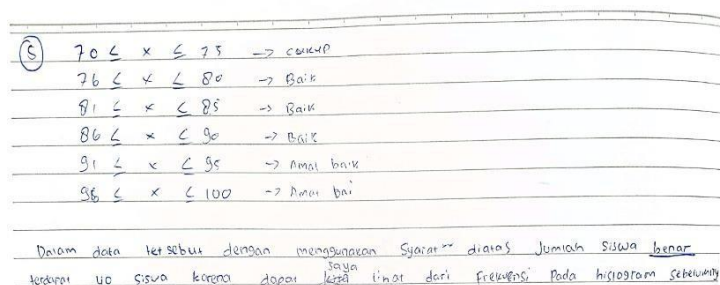 5 70 ≤ x ≤ 75 -> cukup
76 ≤ x ≤ 80 -> Baik
81 ≤ x ≤ 85 -> Baik
86 ≤ x ≤ 90 -> Baik
91 ≤ x ≤ 95 -> Amat baik
96 ≤ x ≤ 100 -> Amat bai
Dalam data tersebut dengan menggunakan Syarat" diatas Jumlah siswa benar
terdapat 40 siswa karena dapat saya lihat dari Frekuensi Pada histogram sebelumny